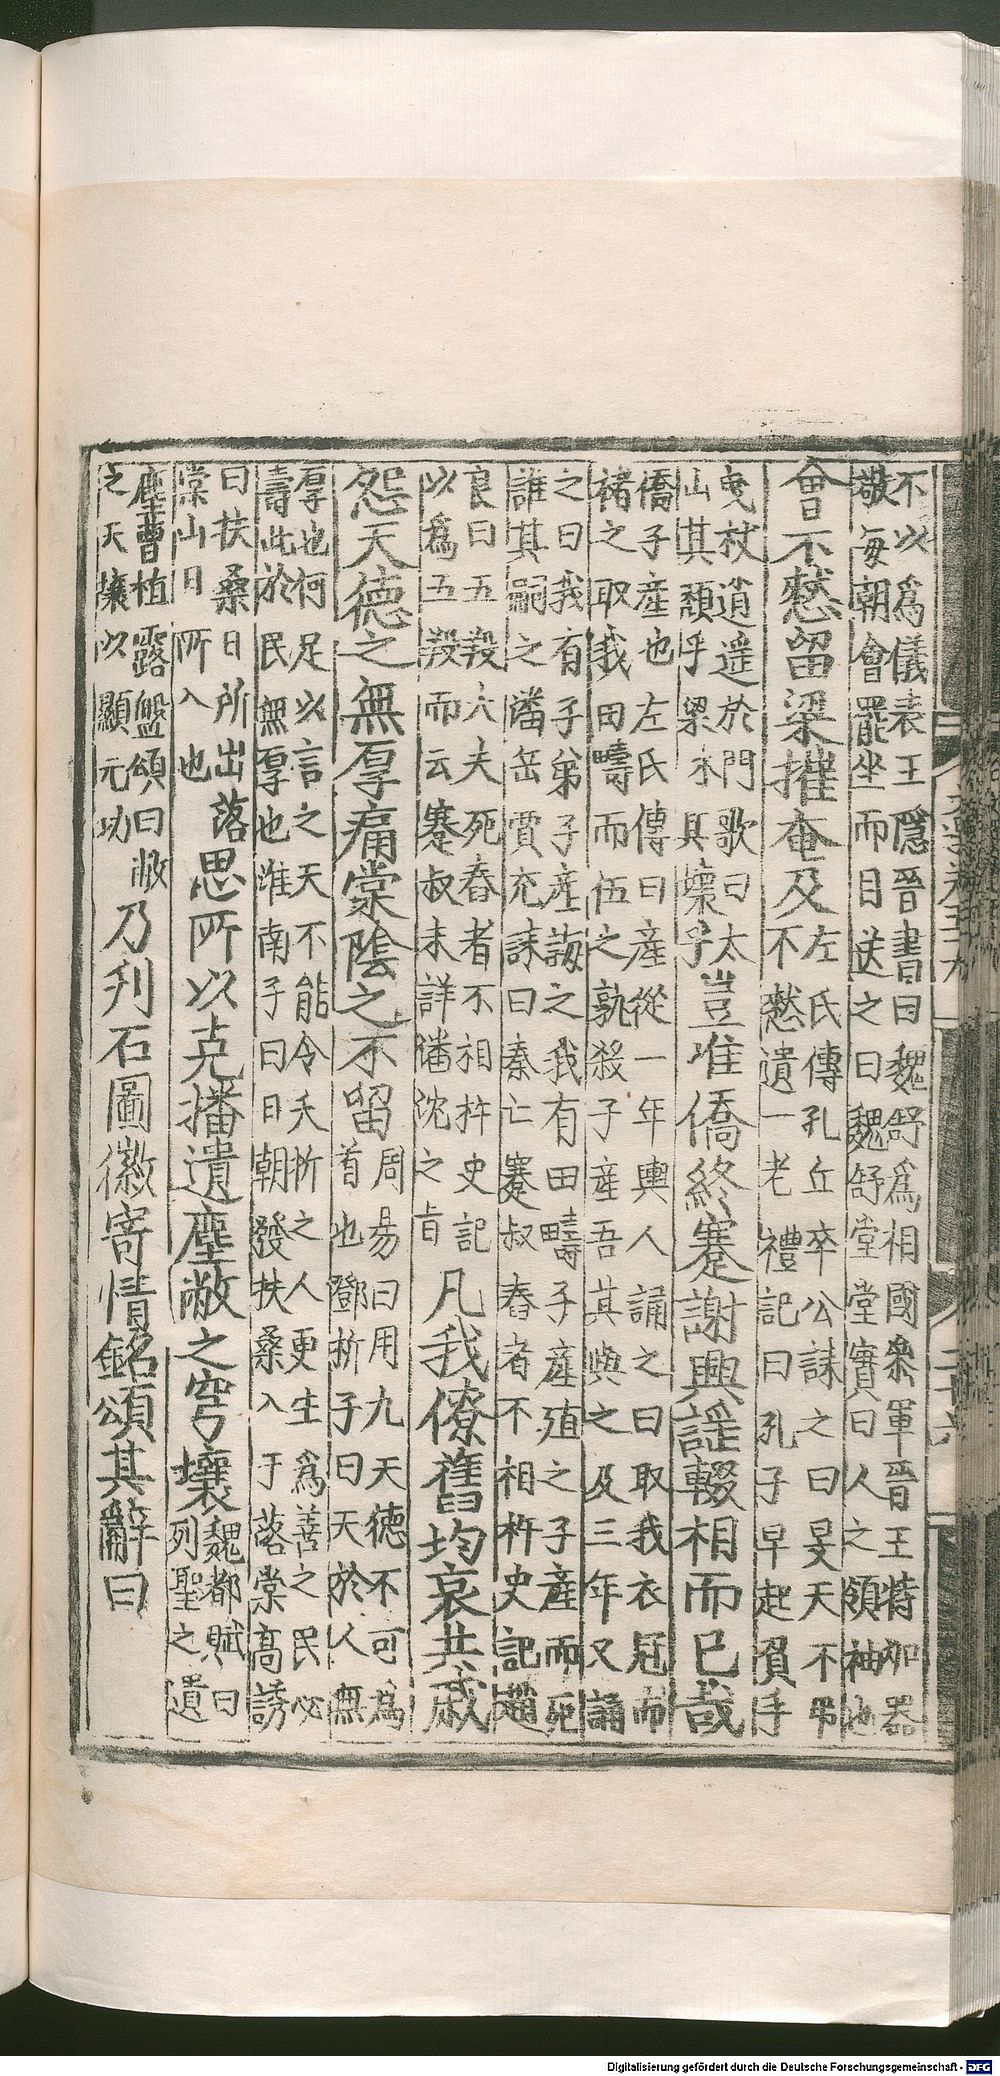 不以爲儀表王隱晉書曰魏舒爲相國叅軍晉王特加器
敬每朝會罷坐而目送之曰魏舒堂堂實曰人之領袖也
曾不憗留梁摧奄及
左氏傳孔丘卒公誄之曰旻天不弔
不憗遺一老禮記曰孔子早起負手
曵杖逍遥於門歌曰太
山其頽乎梁木其壞乎
豈唯僑終蹇謝興謡輟相而已哉
僑子産也左氏傳曰産從一年輿人誦之曰取我衣冠而
褚之取我田疇而伍之孰殺子産吾其與之及三年又誦
之曰我有子弟子産誨之我有田疇子産殖之子産而死
誰其嗣之潘岳賈充誄曰秦亡蹇叔舂者不相杵史記趙
良曰五羖大夫死舂者不相杵史記
以爲五羖而云蹇叔未詳潘沈之旨
凡我僚舊均哀共戚
怨天德之無厚痛棠陰之不留
周易曰用九天德不可為
首也鄧析子曰天於人無
厚也何足以言之天不能令夭折之人更生爲善之民必
壽此於民無厚也淮南子曰日朝發扶桑入于落棠高誘
曰扶桑日所出落
棠山日所入也
思所以克播遺塵敝之穹壤
魏都賦曰
列聖之遺
塵曹植露盤頌曰敝
之天壤以顯元功
乃刋石圖徽寄情銘頌其辭曰
Digitalisierung gefördert durch die Deutsche Forschungsgemeinschaft - DFG